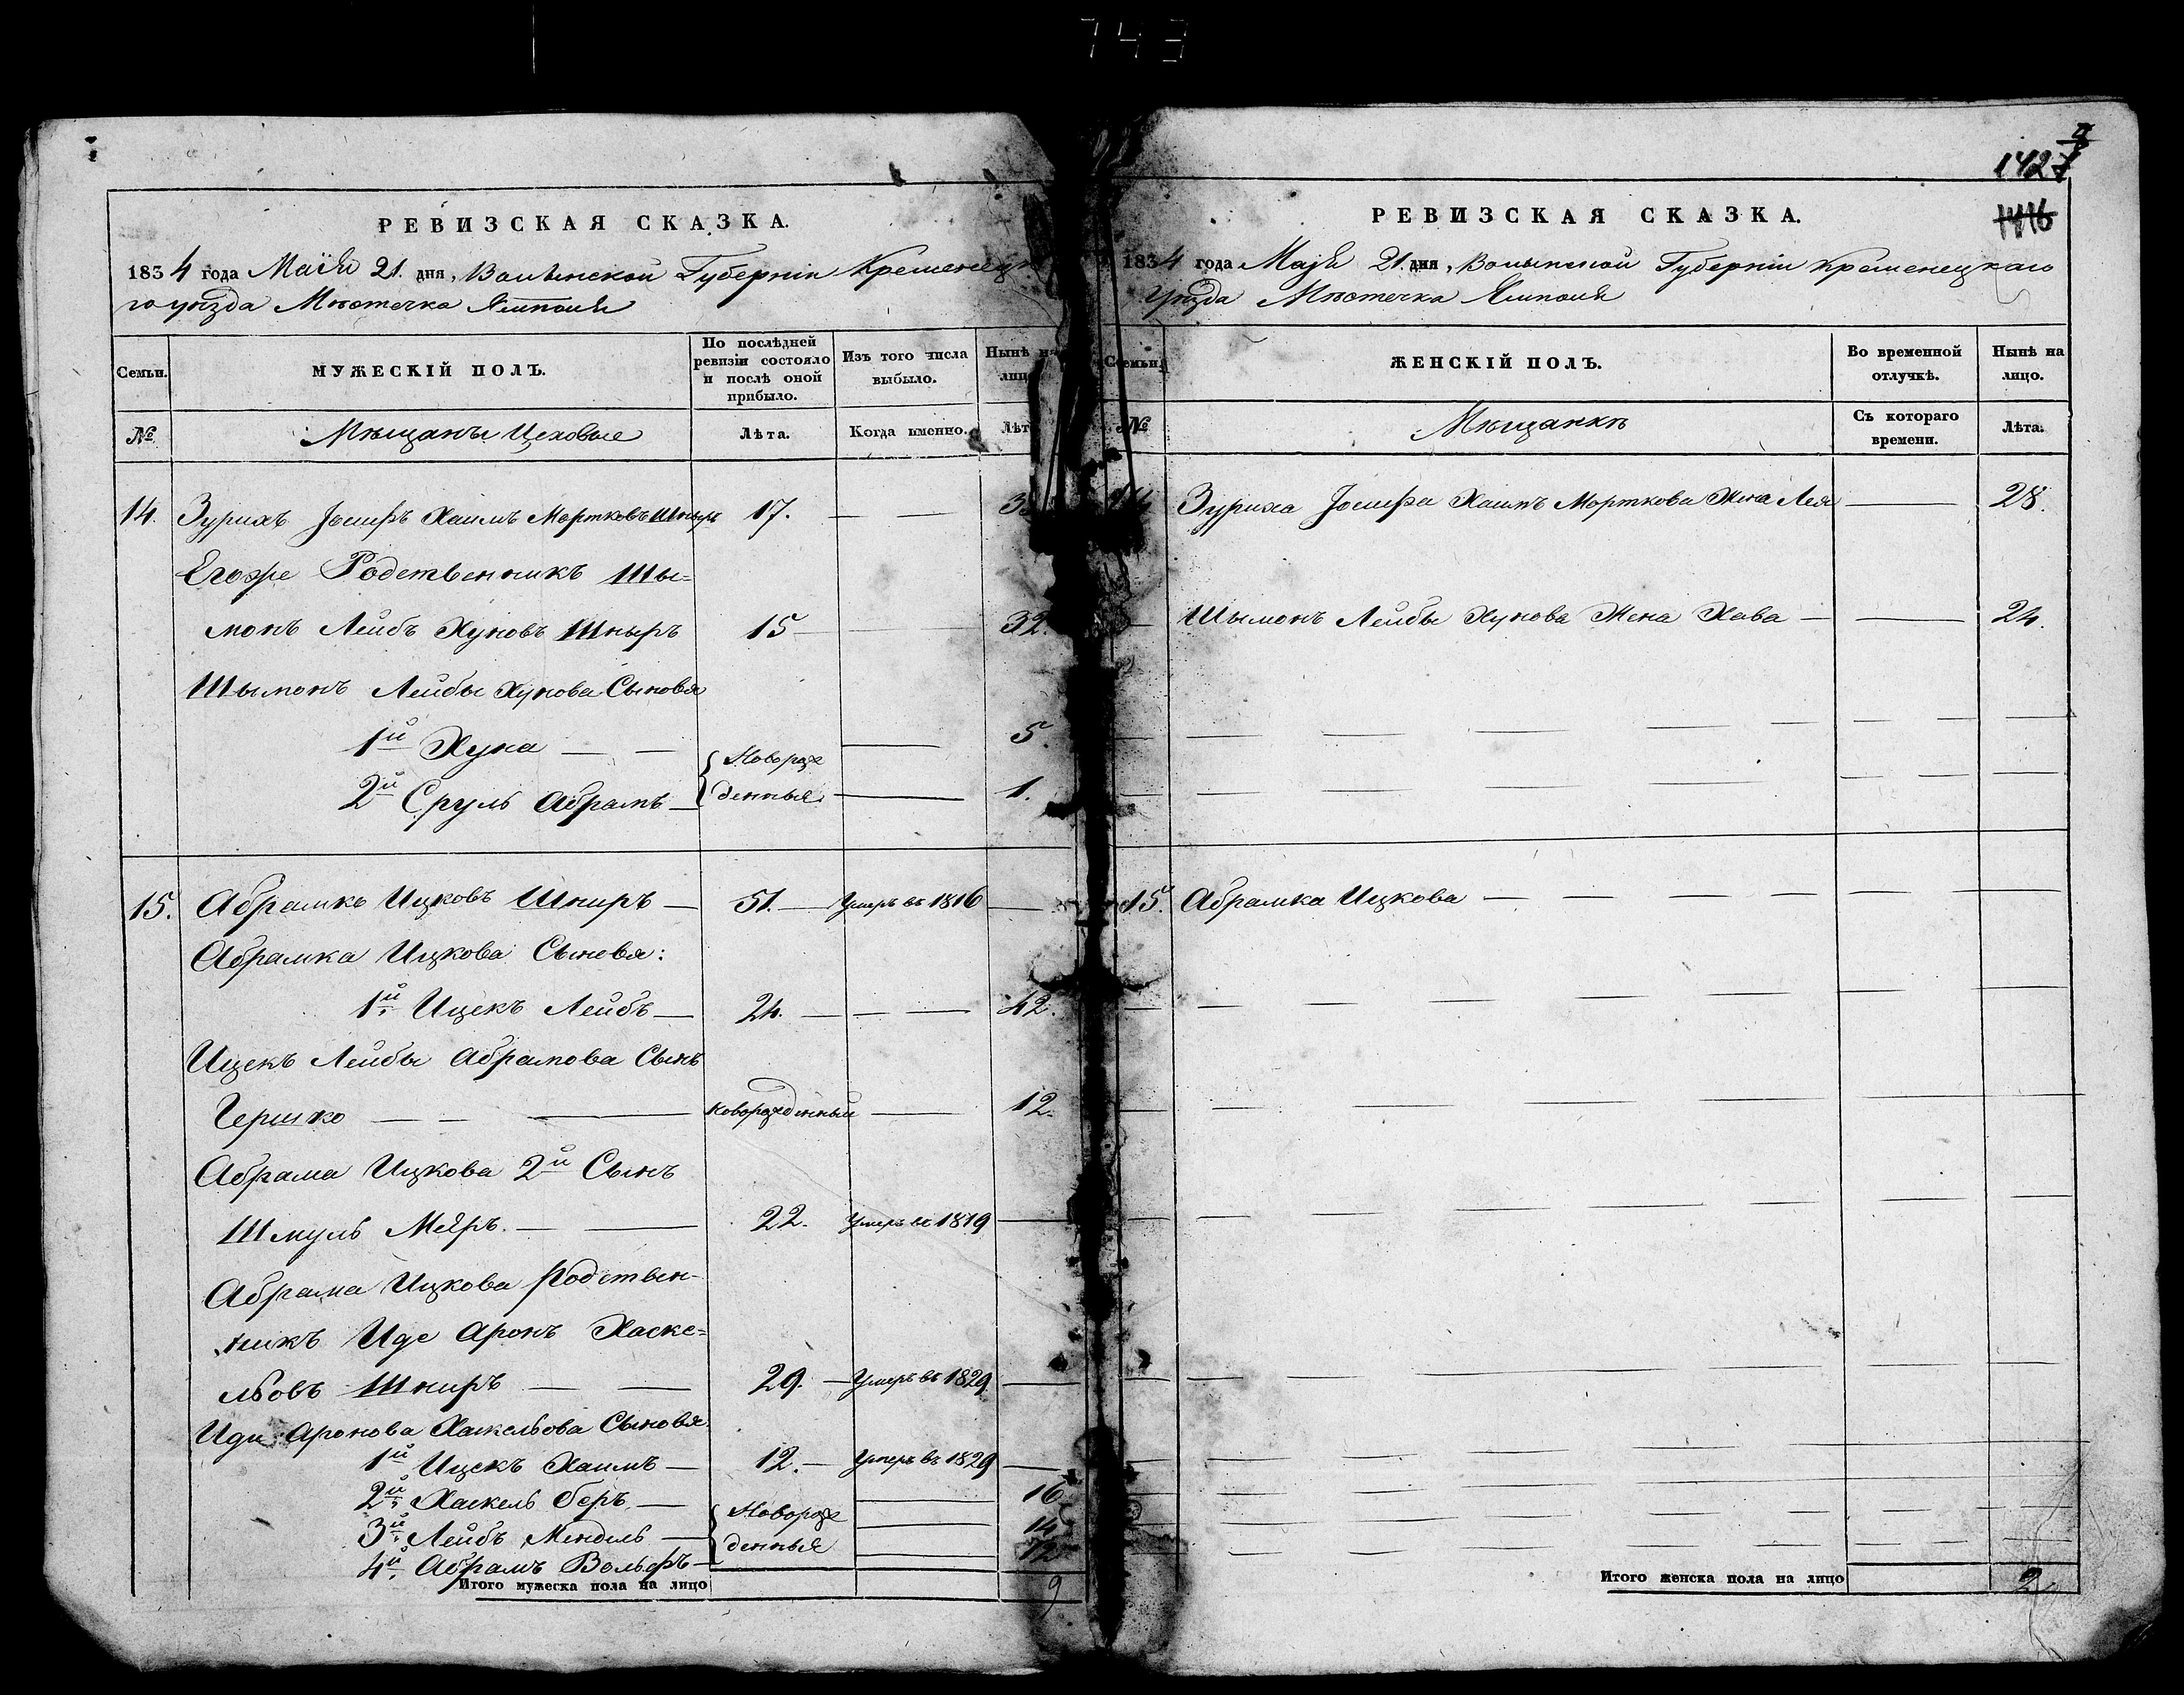 743
РЕВИЗСКАЯ СКАЗКА.
1834 года Маія 21. дня, Волынской Губерніи Кременецка
го уѣзда Мѣстечка Ямполя
Семьи.
МУЖЕСКІЙ ПОЛЪ.
По послѣдней ревизіи состояло и послѣ оной прибыло.
Изъ того числа выбыло.
Нынѣ на лицо
№
Мѣщаны Цеховые
Лѣта.
Когда именно.
Лѣт
14. Зурихъ Іосифъ Хаимъ Мортковъ Шныръ 17. — —
Егоже Родственникъ Шы-
монъ Лейбъ Хуновъ Шныръ 15 — 32.
Шымонъ Лейбы Хунова Сыновья
1й Хуна — — 5.
Новорож
2й Сруль Абрамъ — денныя — 1.
15. Абрамко Ицковъ Шниръ — 51. — Умеръ въ 1816 —
Абрамка Ицкова Сыновья:
1й Ицекъ Лейбъ — 24. — — — 42.
Ицекъ Лейбы Абрамова Сынъ
Гершко — — — новорожденный — 12.
Абрама Ицкова 2й Сынъ
Шмуль Меяръ. — — 22. Умеръ въ 1819 —
Абрама Ицкова Родствен-
никъ Иде Аронъ Хаске-
львъ Шниръ — — 29. — Умеръ въ 1829 —
Иди Аронова Хаскельова Сыновья.
1й Ицекъ Хаимъ — 12. — Умеръ въ 1829 —
2й Хаскель Беръ — Новорож — 16
3й Лейбъ Мендель — — 14
4й Абрамъ Вольфъ — денныя — 12
Итого мужеска пола на лицо 9
1427
1416
РЕВИЗСКАЯ СКАЗКА.
1834 года Маія 21. дня, Волынской Губерніи Кременецкаго
Уѣзда Мѣстечка Ямполя
Семьи
ЖЕНСКІЙ ПОЛЪ.
Во временной отлучкѣ.
Нынѣ на лицо.
№
Мѣщанкѣ
Съ котораго времени.
Лѣта.
14 Зуриха Іосифа Хаимъ Морткова Жена Лея — 28.
Шымонъ Лейбы Хунова Жена Хава — — 24.
15. Абрамка Ицкова — — — —
Итого женска пола на лицо 2